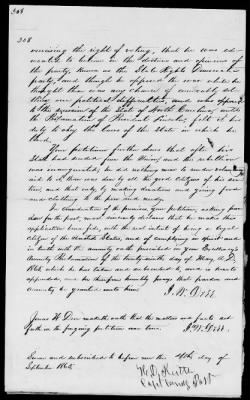 308
308
exercising the right of voting, that he was ed-
ucated to believe in the doctrines and opinions of
the party, known as the State Rights Democratic
party, and though he opposed the war while he
thought there was any chance of amicably set-
tling our political difficulties, and was opposed
to the secession of the State of North Carolina, until
the Proclamation of President Lincoln, felt it his
duty to obey the laws of the State in which he
lived.
Your petitioner further shows that after his
State had seceded from the Union and the rebellion
was inaugurated, he did nothing more to render
aid to it than was done by all the good citizens of his sec-
tion, and that only by making donations and giving food
and clothing to the poor and needy.
In consideration of the premises, Your petitioner, asking par-
don for the past, most sincerely declares that he makes this
application bona fide, with the real intent of being a loyal
citizen of the United States, and of complying in spirit and
in truth with the amnesty oath prescribed in your Excellency's
Amnesty Proclamation of the twenty-ninth day of May A.D.
1865, which he has taken and subscribed to, and is hereto
appended; and he therefore humbly prays that pardon and
amnesty be granted unto him.
J. W.
James W. maketh oath that the matters and facts set
forth in the foregoing petition are true. J. W.
Sworn and subscribed to before me this day of
September 1865
Capt